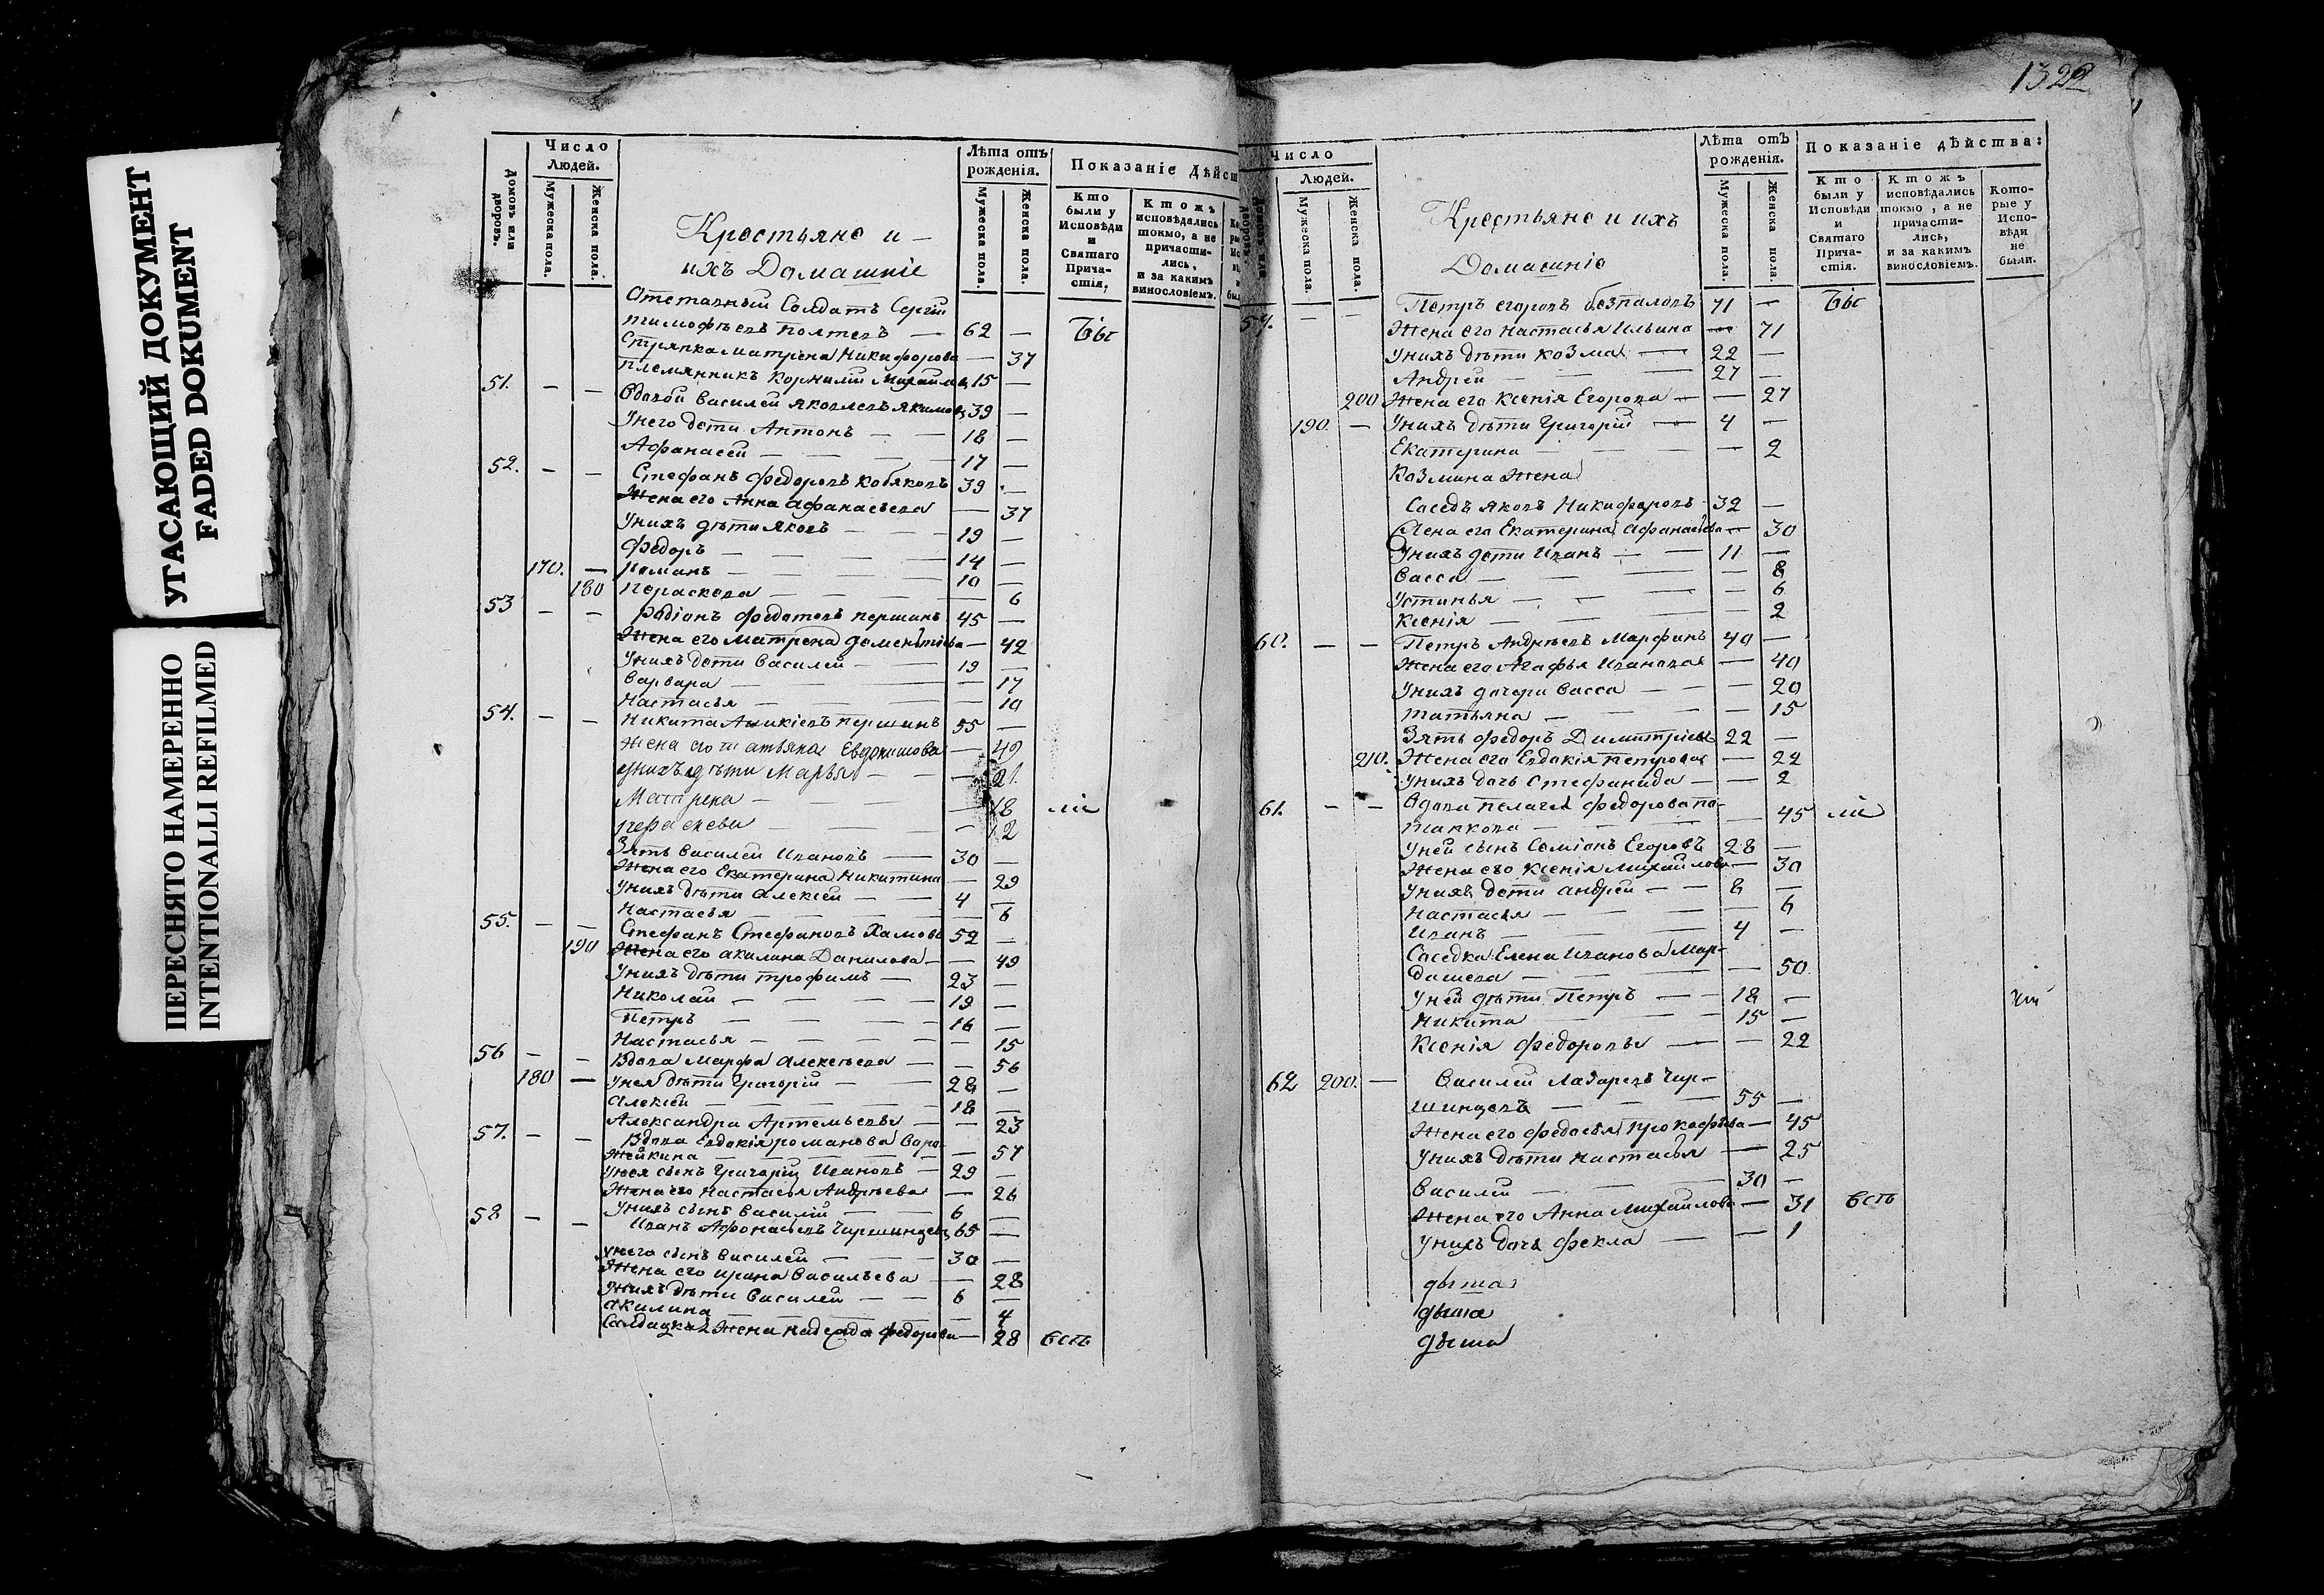 УГАСАЮЩИЙ ДОКУМЕНТ
FADED DOKUMENT
ПЕРЕСНЯТО НАМЕРЕННО
INTENTIONALLI REFILMED
Домовъ или дворовъ.
Число Людей.
Мужеска пола.
Женска пола.
Крестьяне и –
ихъ Домашніе
Лѣта отъ рожденія.
Мужеска пола.
Женска пола.
Показаніе Дѣйст
Кто были у Исповѣди и Святаго Прича-стія,
Ктожъ исповѣдались токмо, а не причасти-лись, и за какимъ винословіемъ.
Отставный Солдатъ Сергій
тимофѣевъ полтевъ — 62 — Бы
Стряпка Матрена Никифорова — 37
племянникъ Корнилій Михайловъ 15 —
51. — — Вдовый Василей яковлевъ якимовъ 39 —
Унего дети Антонъ — — 18 —
Афанасей — — — 17 —
52. — — Стефанъ федоровъ кобяковъ 39 —
Жена его Анна афанасьева — 37
Унихъ дѣти яковъ — — 19 —
федоръ — — — 14 —
170. — романъ — — — 10 —
180 пераскева — — — — 6
53 — — радіонъ федотовъ першинъ 45 —
Жена его матрена дементіева — 42
Унихъ дети василей — — 19 —
варвара — — — 17
Настасья — — — — 10
54. — — Никита Аникіевъ першинъ 55 —
жена его татьяна Евдокимова — 49
унихъ дѣти Марья — — — 21
Матрена — — — — 18 ли
пераскева — — — — 12
Зять василей Ивановъ — 30 —
Жена его Екатерина Никитина — 29
Унихъ дѣти Алексей — — 4 —
Настасья — — — — 6
55. — — Стефанъ Стефановъ Хамовъ 52 —
190 Жена его акилина Данилова — — 49
Унихъ дѣти трофимъ — 23 —
Николай — — — 19 —
Петръ — — — — 16 —
Настасья — — — — — 15
56 — — Вдова Марфа алексѣева — — 56
180 — Унея дѣти Григорій — — 28 —
алексѣй — — — — 18 —
Александра Артемьевы — — 23
57. — — Вдова Евдокія романова вара-
жейкина — — — — 57
Унея сынъ Григорій Ивановъ — 29 —
Жена его Настасья Андреева — 26
Унихъ сынъ василій — — 6 —
58 — — Иванъ Афонасьевъ Чиршинцевъ 65 —
унего сынъ василей — — 30 —
Жена его ирина васильева — 28
Унихъ дѣти василей — — 6 —
акилина — — — — 4
Салдацкая жена надежда федорова — 28 Есть
1322
Число Людей.
Мужеска пола.
Женска пола.
Крестьяне и ихъ
Домашніе
Лѣта отъ рожденія.
Мужеска пола.
Женска пола.
Показаніе дѣйства:
Кто были у Исповѣди и Святаго Прича-стія.
Ктожъ исповѣдались токмо, а не причасти-лись, и за какимъ винословіемъ.
Кото-рые у Испо-вѣди не были.
59. — — Петръ егоровъ безпаловъ 71 — Бы
Жена его Настасья Ильина — 71
Унихъ дѣти козма — 22 —
Андрей — — — 27 —
200 Жена его Ксенія Егорова — — 27
190. — Унихъ дѣти Григорій — 4 —
Екатерина — — — — 2
Козмина жена
Соседъ яковъ Никифоровъ 32 —
Жена его Екатерина афанасьева — 30
Унихъ дети Иванъ — — 11 —
Васса — — — — 8
Устинья — — — — 6
Ксенія — — — — 2
60. — — Петръ Андреевъ Марфинъ 40 —
Жена его Агафья Иванова — 40
Унихъ дочери Васса — — — 20
татьяна — — — — 15
Зять федоръ Димитріевъ 22 —
210. Жена его Евдокія петрова — 22
Унихъ дочь Стефанида — — 2
61. — — Вдова пелагея федорова по-
тапкова — — — — 45 ли
Уней сынъ Семіонъ Егоровъ 28 —
Жена его Ксенія михайлова — 30
Унихъ дети андрей — — 8 —
Настасья — — — — 6
Иванъ — — — 4 —
Соседка Елена Иванова Мар-
дашева — — — — 50
Уней дѣти Петръ — — 18 —
Никита — — — 15 —
Ксенія федоровы — — 22
62 200. — Василей лазаревъ Чир-
шинцевъ — — — 55 —
Жена его федосья прокофьева — 45
Унихъ дѣти настасья — — 25
Василій — — — 30 —
Жена его Анна Михайлова — 31 Есть
Унихъ дочь фекла — — 1